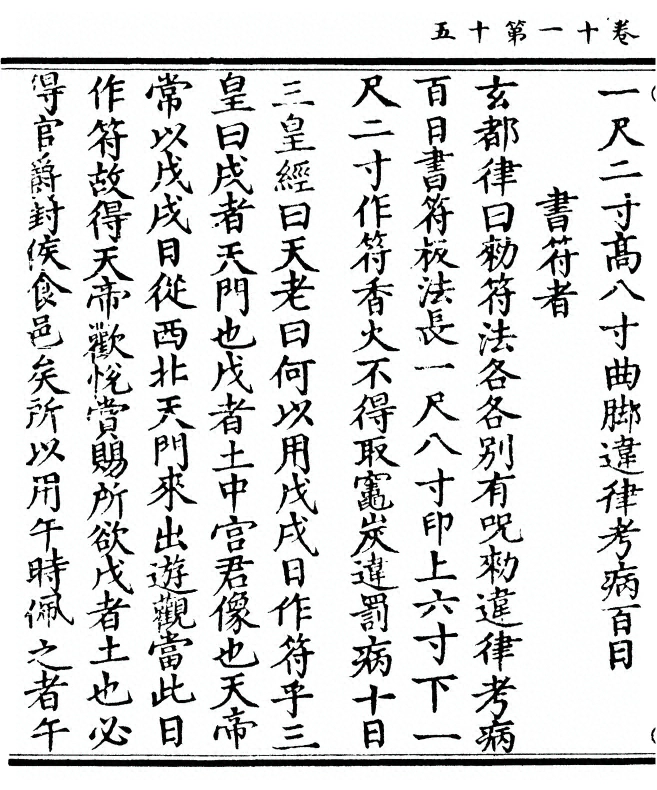 卷十一第十五
一尺二寸高八寸曲脚違律考病百日
書符者
玄都律曰勑符法各各别有呪勑違律考病
百日書符板法長一尺八寸印上六寸下一
尺二寸作符香火不得取竈炭違罰病十日
三皇經曰天老曰何以用戊戌日作符乎三
皇曰戌者天門也戊者土中宫君像也天帝
常以戊戌日從西北天門來出遊觀當此日
作符故得天帝歡悅賞賜所欲戊者土也必
得官爵封侯食邑矣所以用午時佩之者午